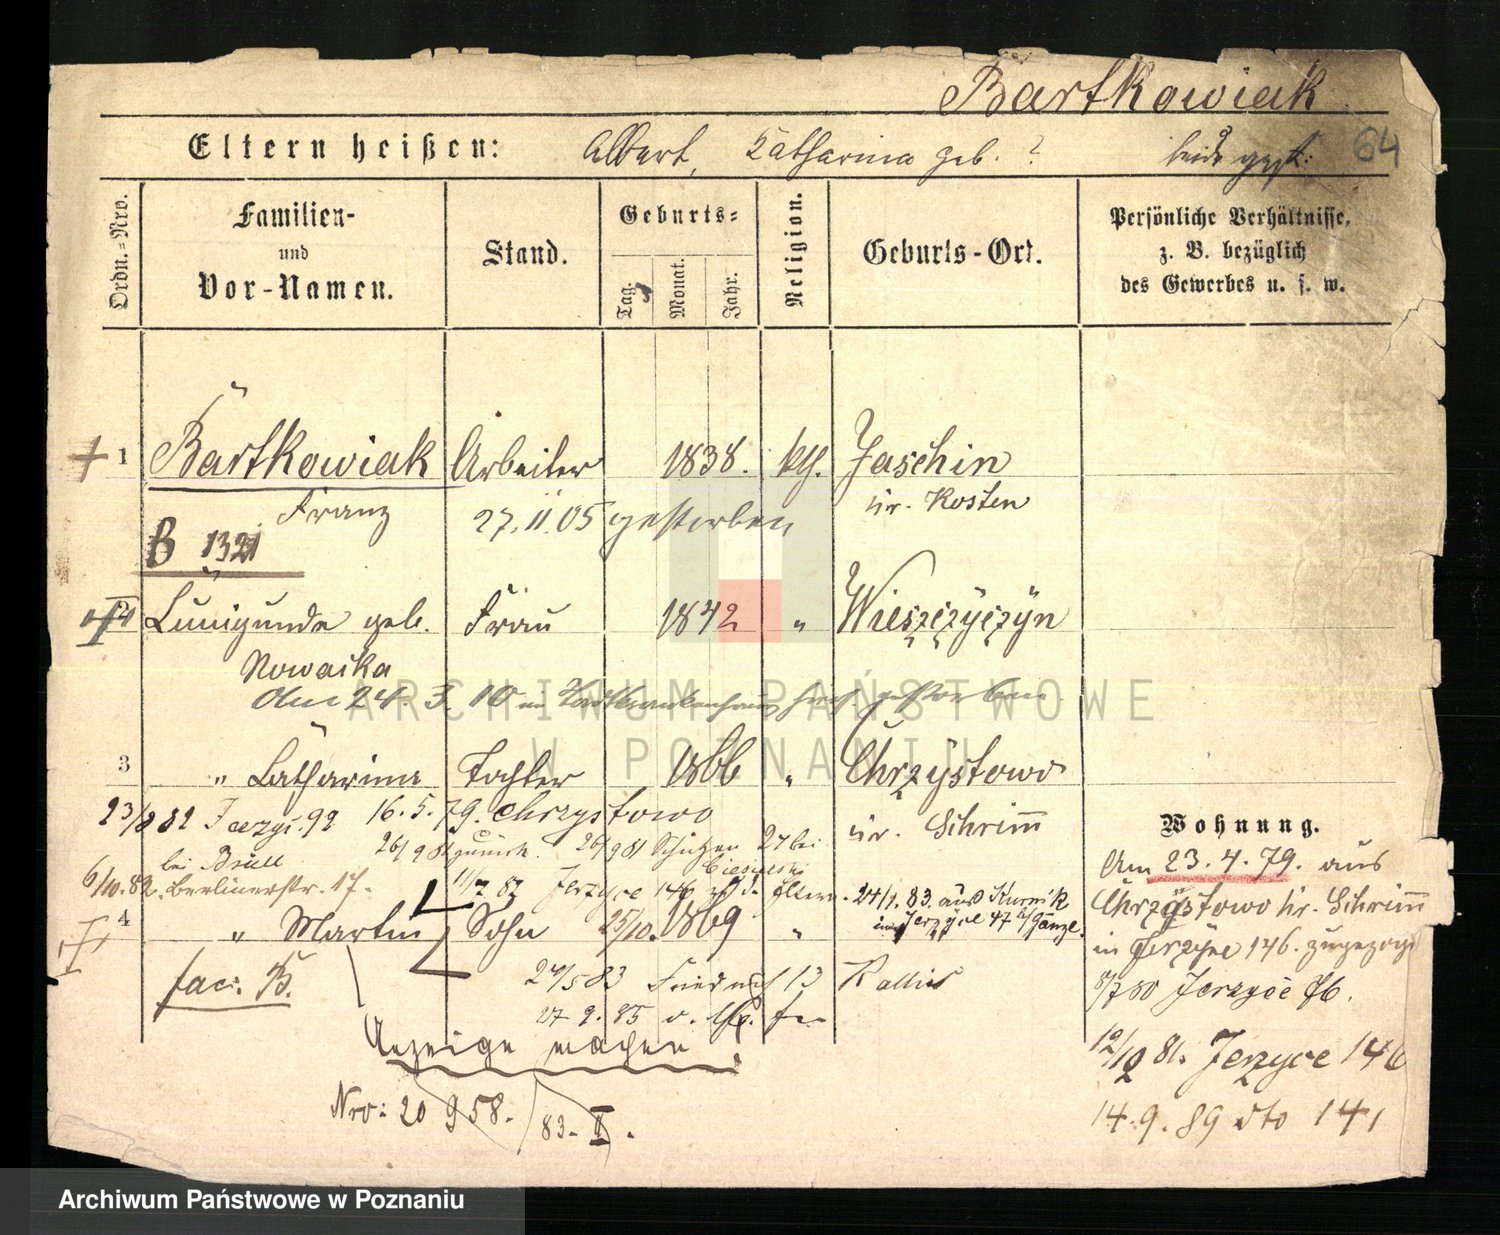 Bartkowiak
Eltern heißen: Albert, Katharina geb. ? beide gest.
64
Ordn.=Nro.
Familien-
und
Vor-Namen.
Stand.
Geburts=
Tag.
Monat.
Jahr.
Religion.
Geburts-Ort.
Persönliche Verhältnisse,
z. B. bezüglich
des Gewerbes u. s. w.
1 Bartkowiak Arbeiter 1838. kth. Jaschin
Franz 27.11.05 gestorben Kr. Kosten
B 1321
Kunigunde geb. Frau 1842 " Wieszczyczyn
Nowacka
Am 24. 3. 10 im gestorben
3 " Katharina Tochter 1866 " Chrzystowo
23/8 82 Jerzyc. 92 16.5.79. Chrzystowo Kr. Schrimm
bei Brüll 26/9 81 zurück. 26/9 81 Schützen 27 bei
6/10.82. Berlinerstr. 17. 11/7 82 Jerzyce 146 Eltern. 24/1.83. aus Kurnik
in Jerzyce 47
4 " Martin, Sohn 25/10. 1869 "
fac: B. 24/5 83 Friedrich 13 Kallies
27 9. 85
Anzeige machen!
Nro: 20 958. / 83. II.
Wohnung.
Am 23.4.79. aus
Chrzystowo Kr. Schrimm
in Jerzyce 146. zugezog.
8/7 80 Jerzyce 76.
12/10 81. Jerzyce 146
14.9.89 dto 141
ARCHIWUM PAŃSTWOWE
W POZNANIU
Archiwum Państwowe w Poznaniu